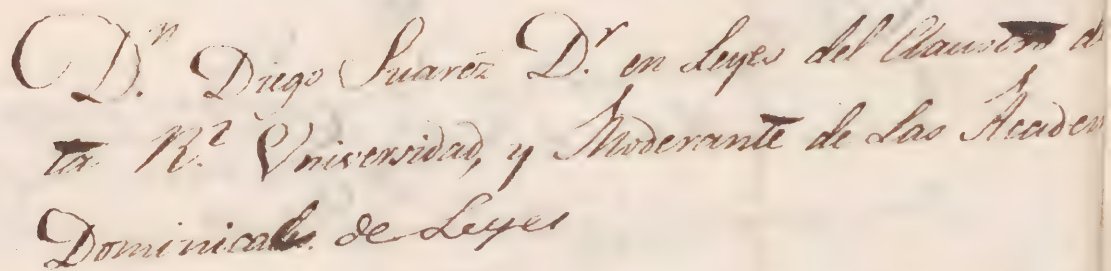 D.ⁿ Diego Suarez D.ʳ en Leyes del Claustro d
ta R.ˡ Vniversidad, y Moderante de Las Academ
Dominicales de Leyes